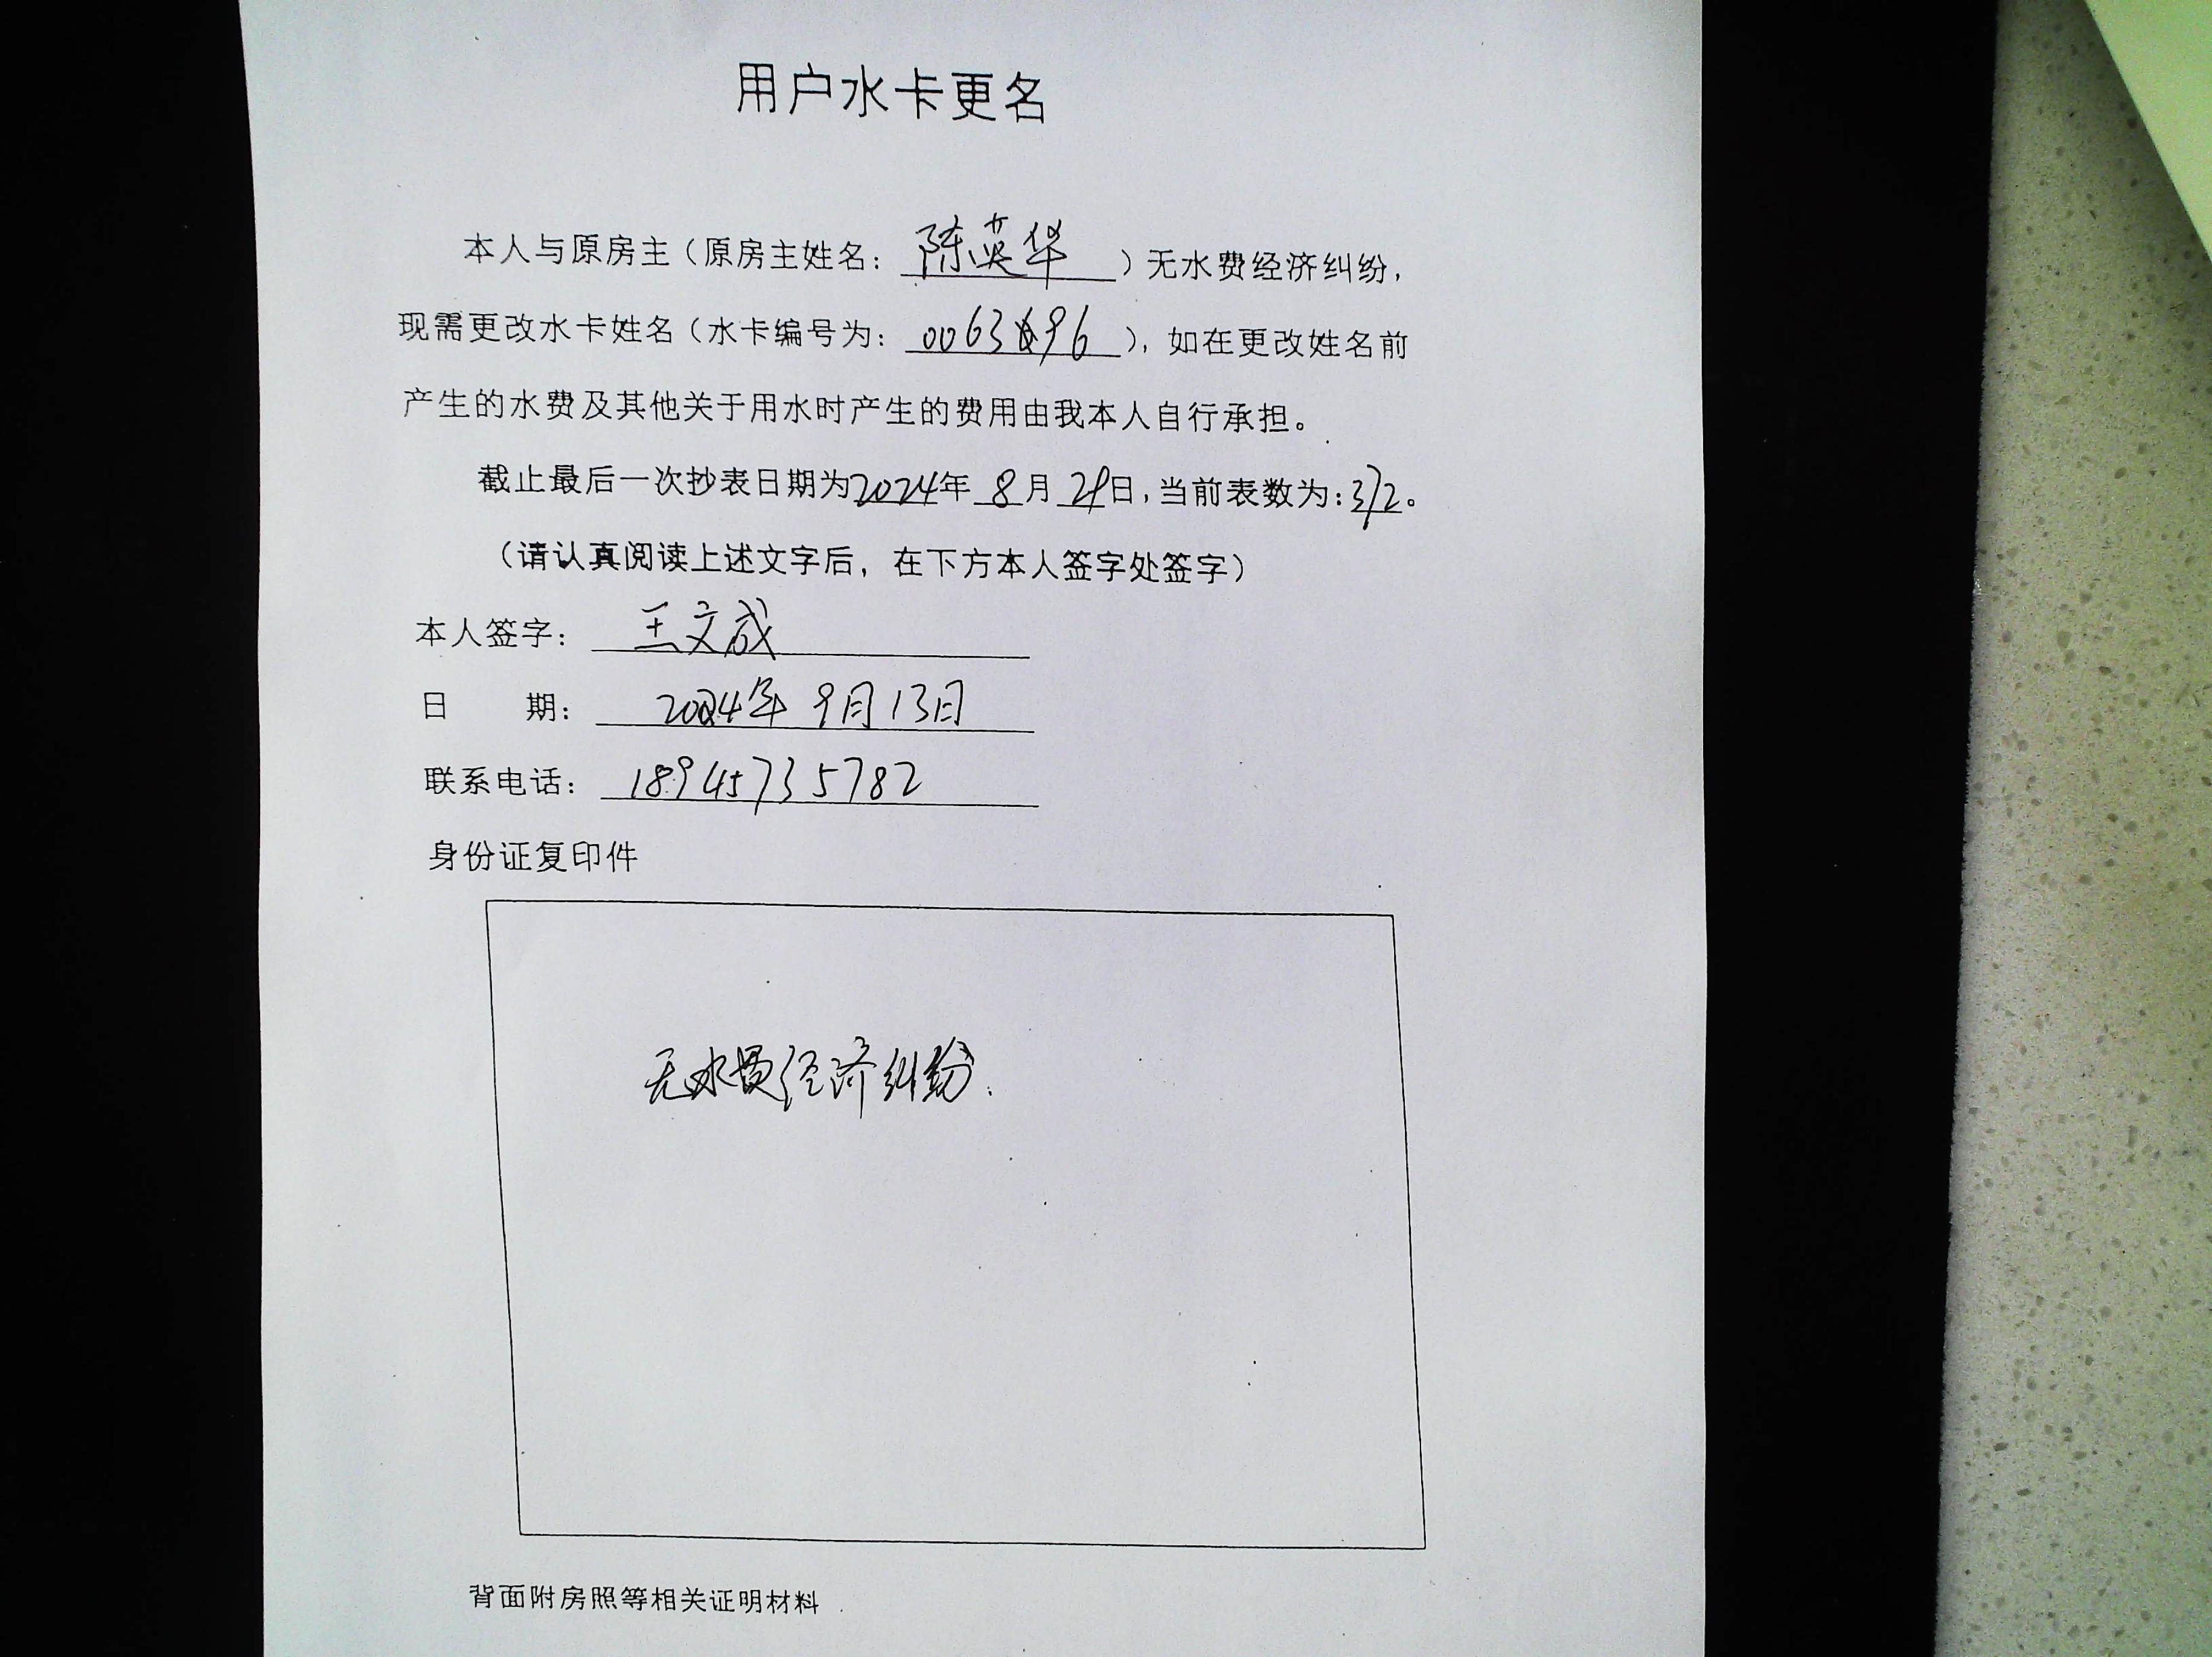 用户水卡更名
本人与原房主（原房主姓名：陈英华）无水费经济纠纷，
现需更改水卡姓名（水卡编号为：0063696），如在更改姓名前
产生的水费及其他关于用水时产生的费用由我本人自行承担。
截止最后一次抄表日期为2024年8月29日，当前表数为：372。
（请认真阅读上述文字后，在下方本人签字处签字）
本人签字：王文成
日 期：2024年9月13日
联系电话：18945735782
身份证复印件
无水费经济纠纷.
背面附房照等相关证明材料